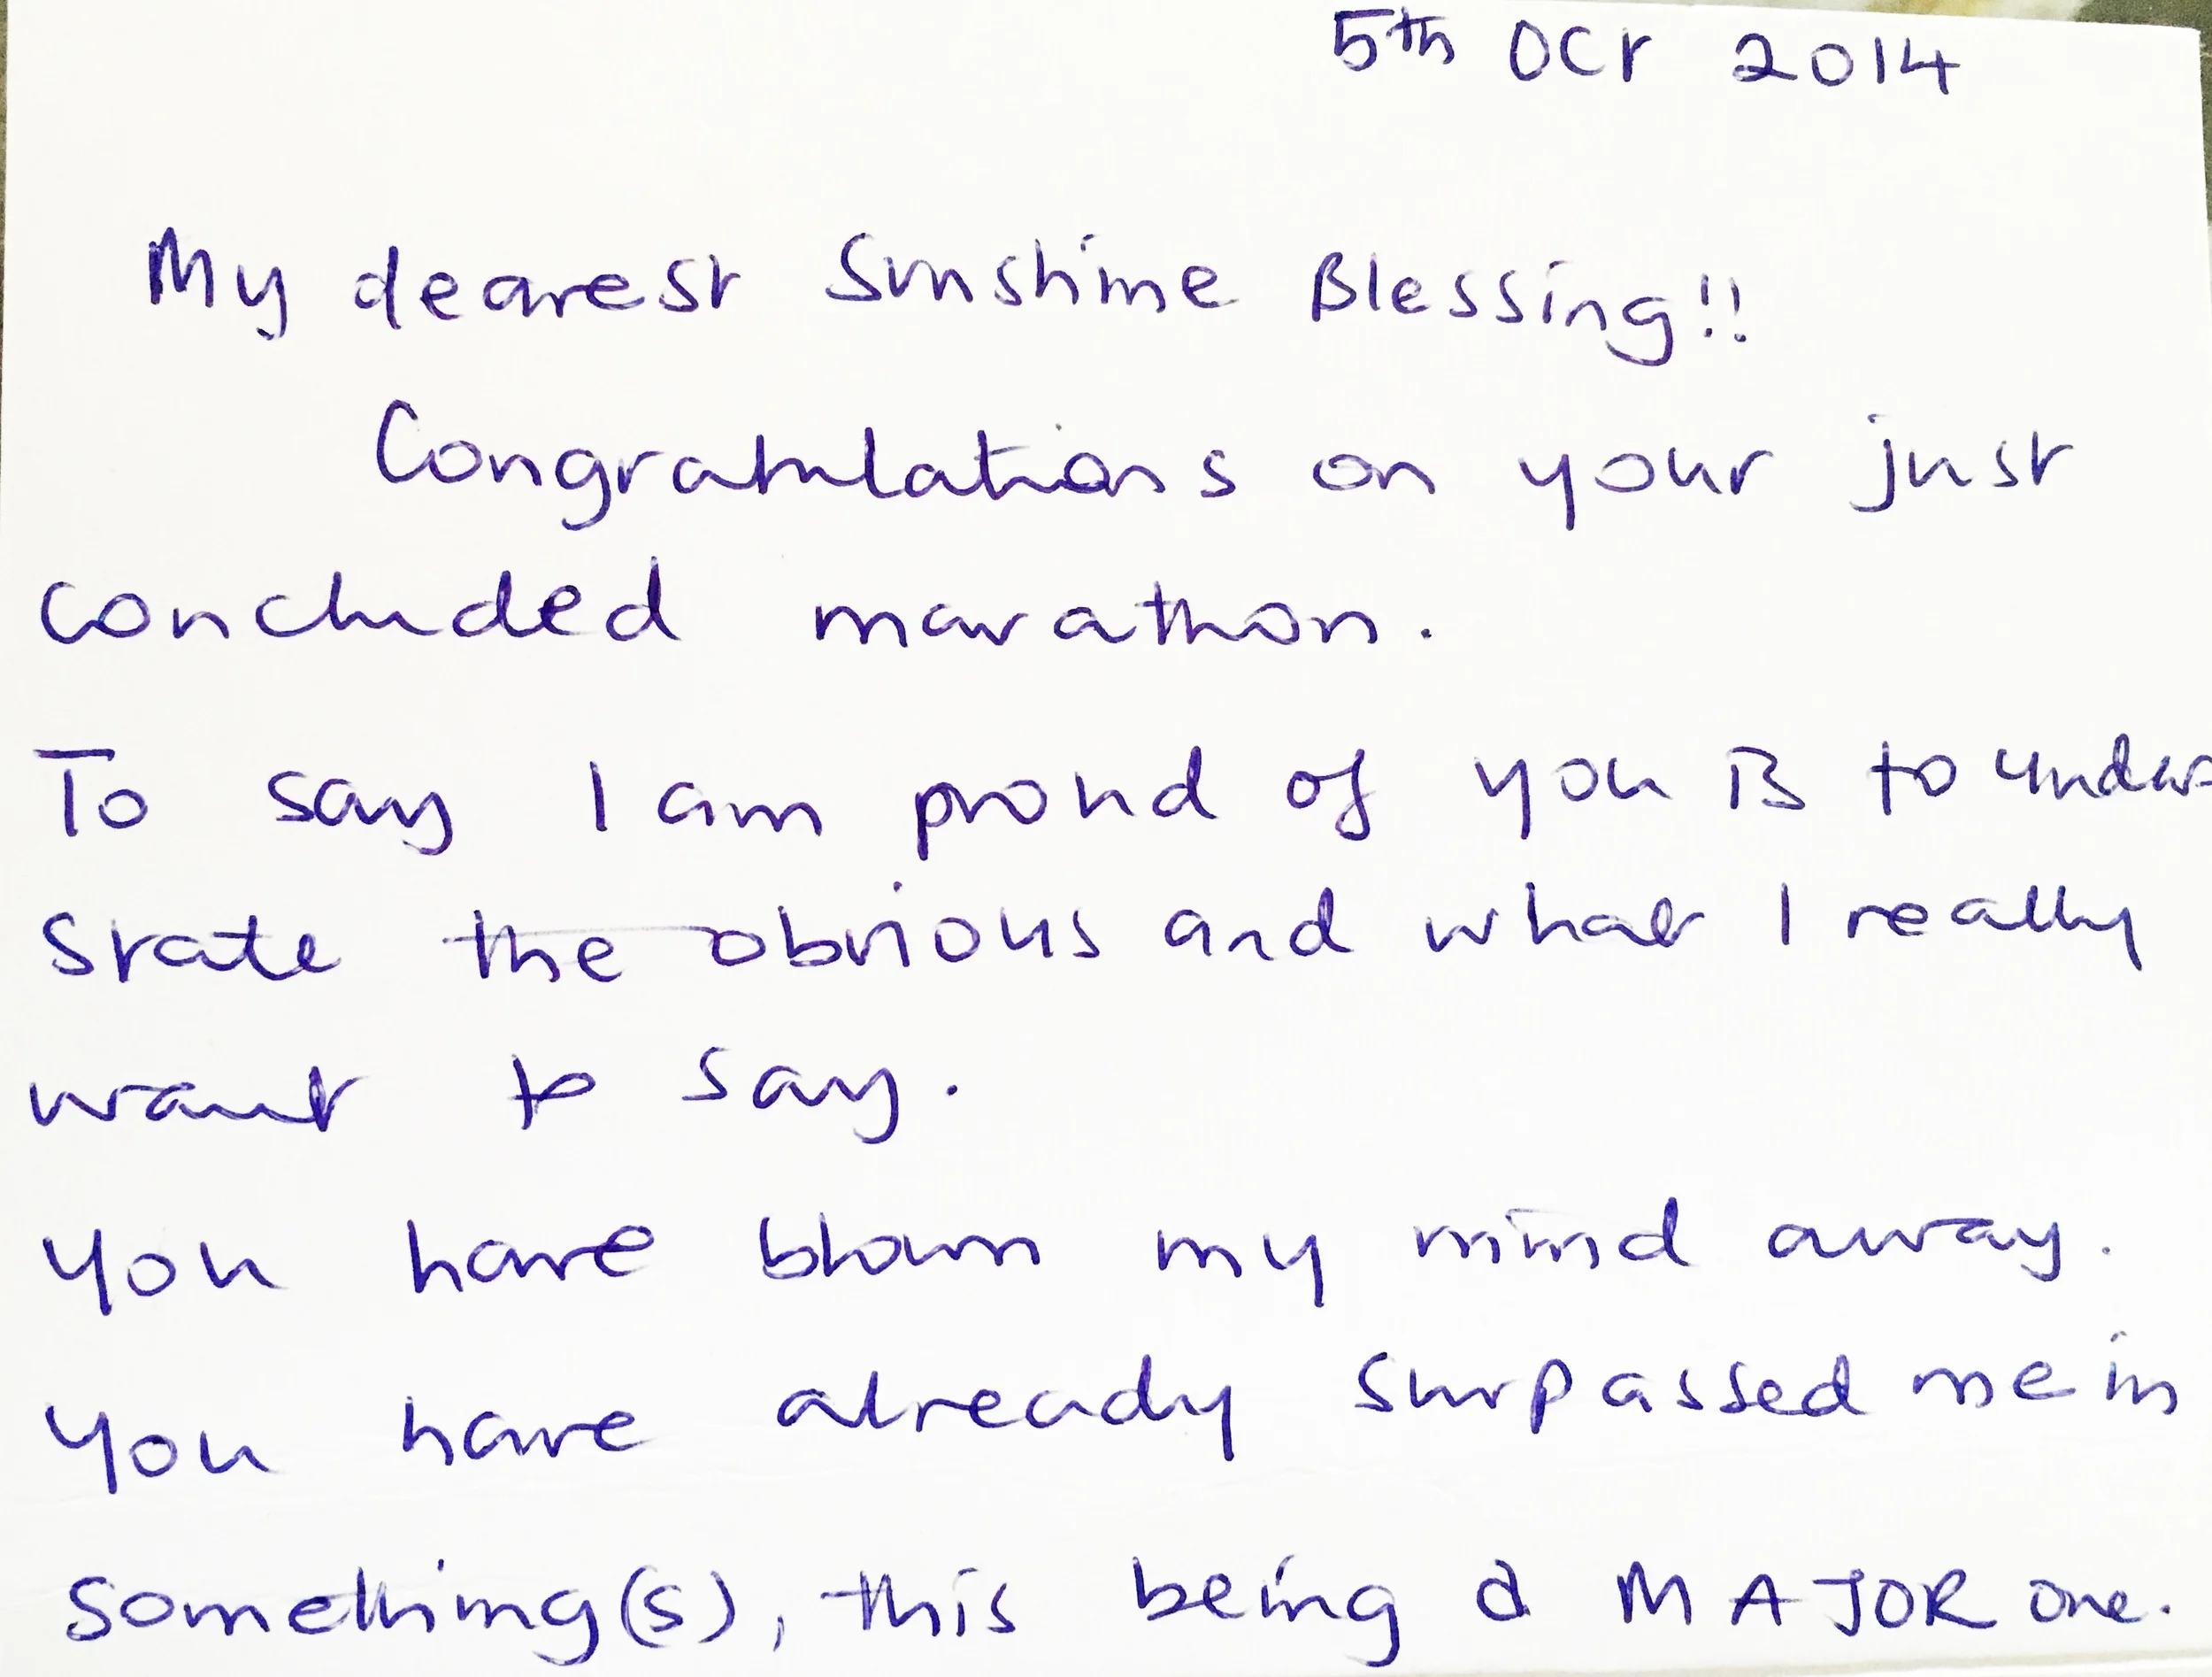 5th Oct 2014
My dearest Sunshine Blessing!!
Congratulations on your just
concluded marathon.
To say I am proud of you is to under
state the obvious and what I really
want to say.
You have blown my mind away.
You have already surpassed me in
something(s), this being a MAJOR one.